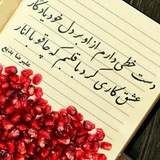 دست خطی دارم از او بر دل خود یادگار
عشق کاری کرد با قلبم که چاقو با انار
علیرضا بدیع